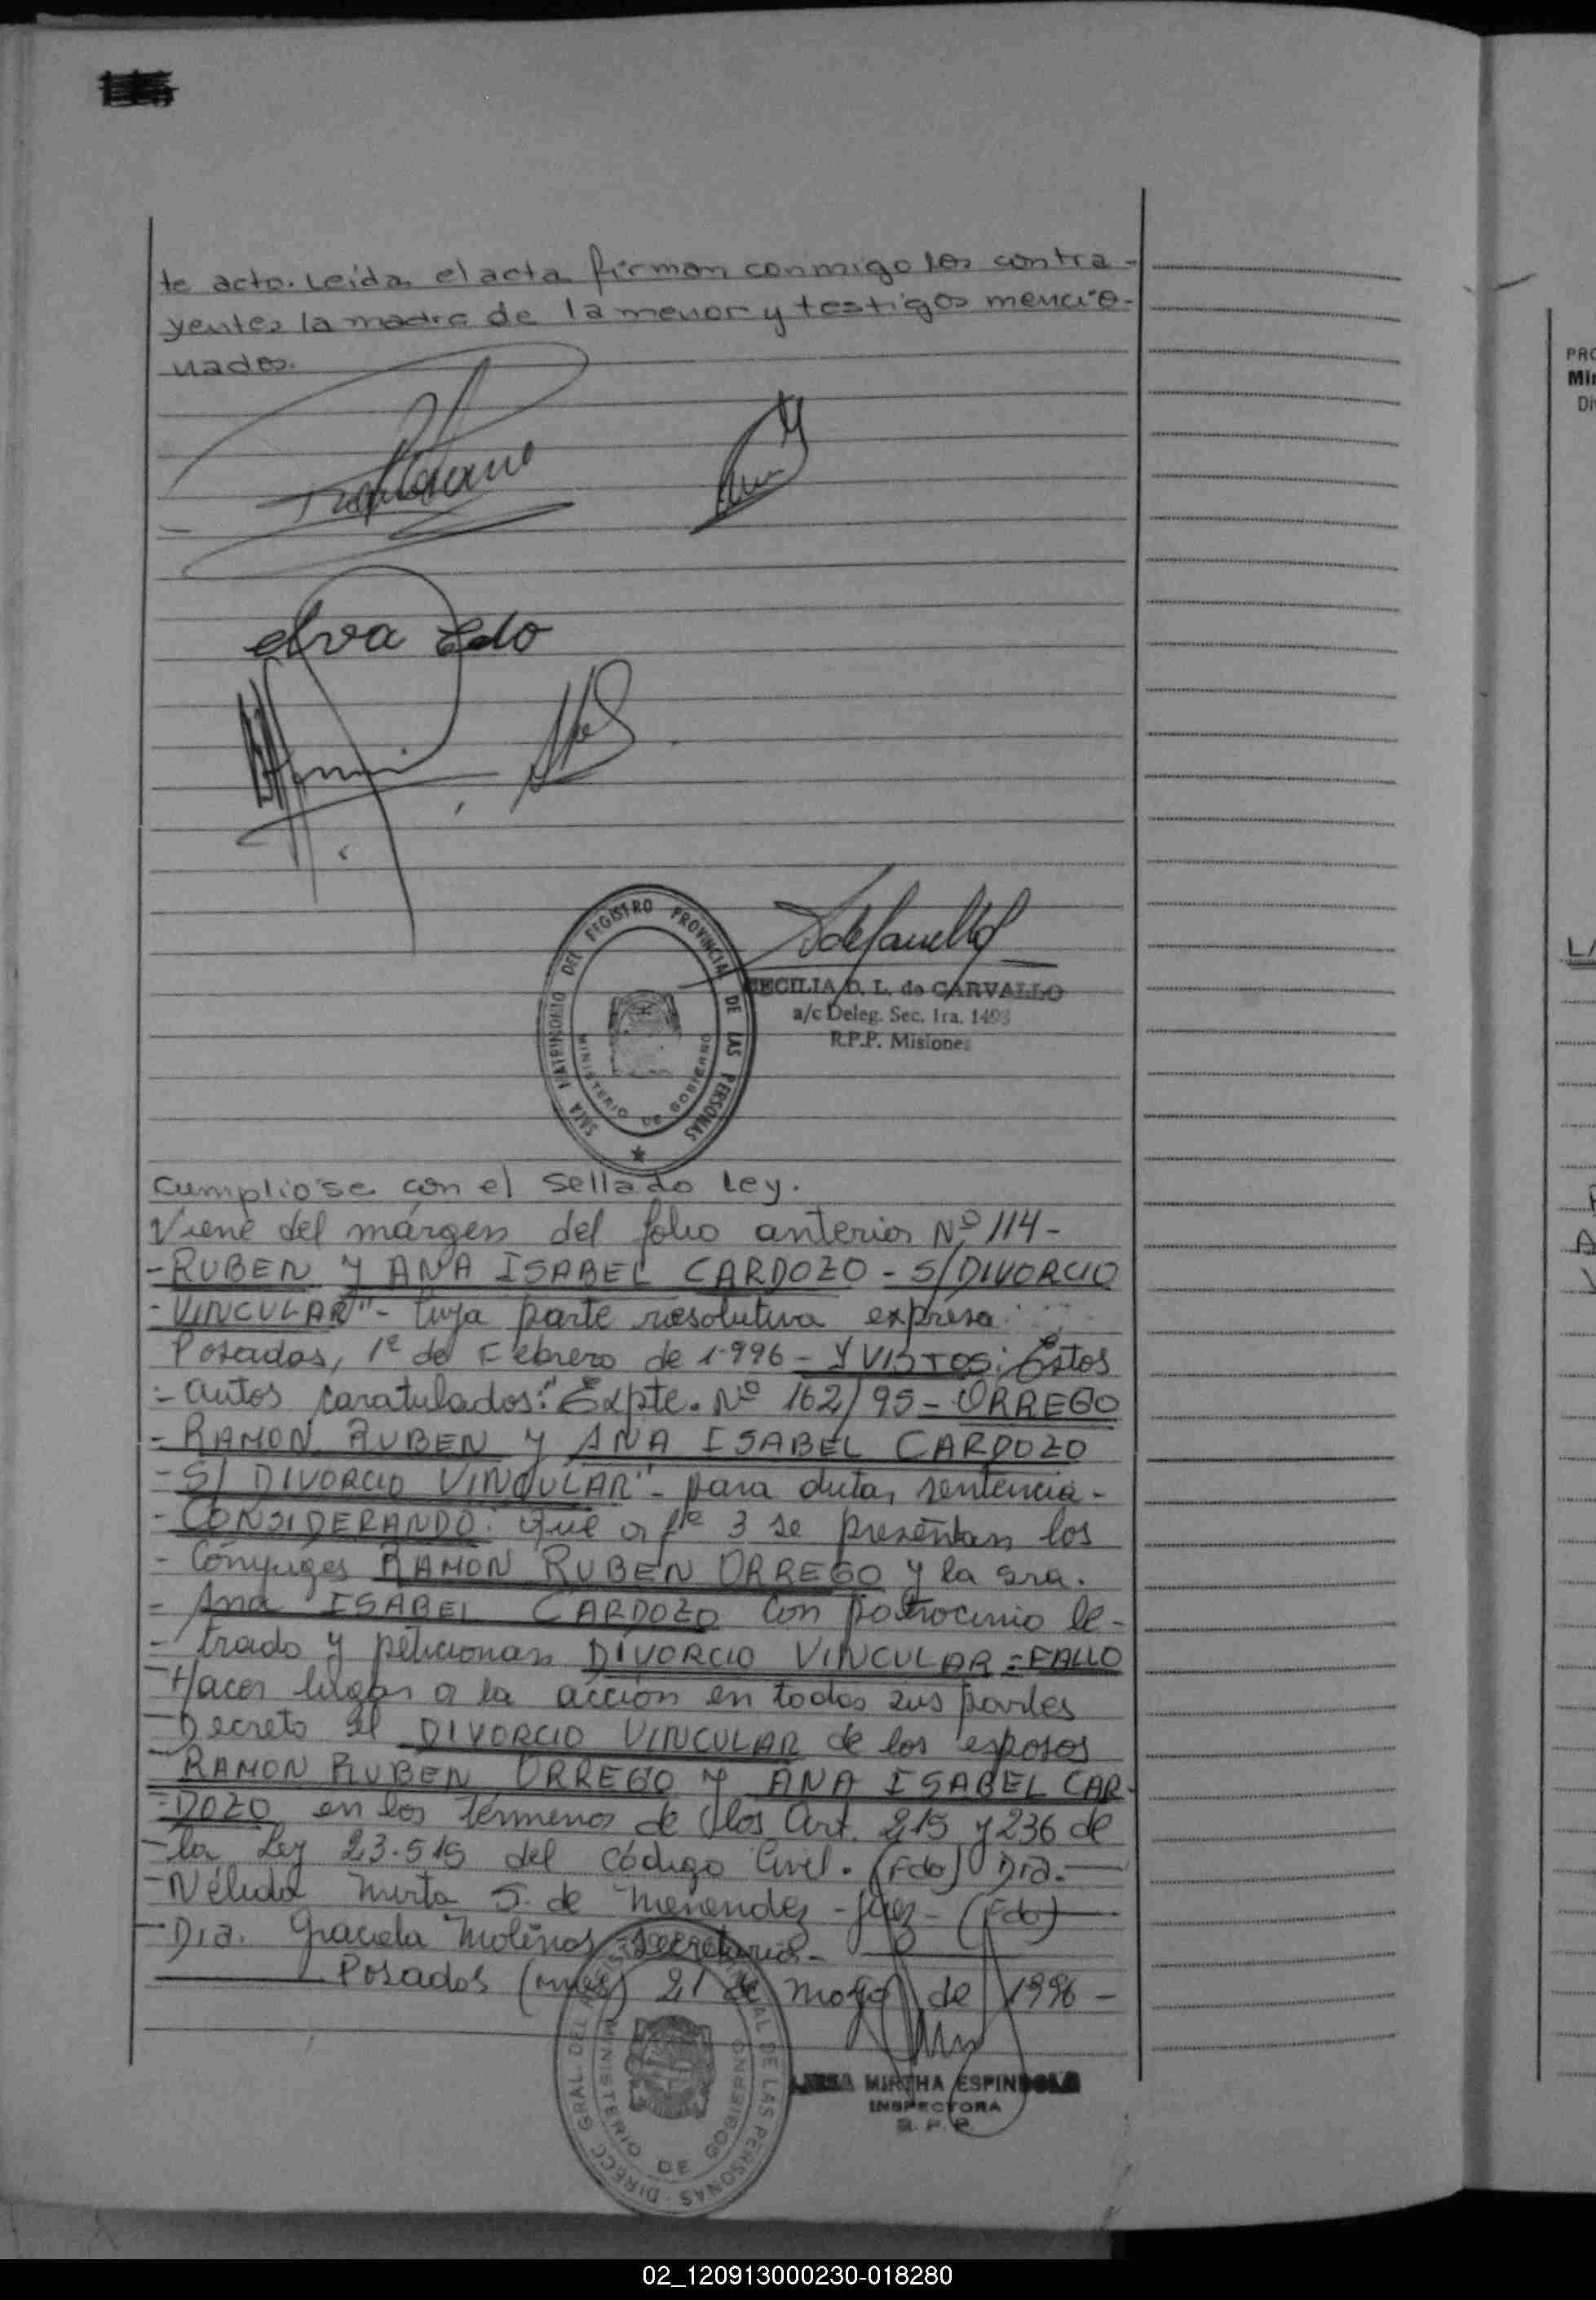 te acto. Leida el acta firman conmigo los contra-
yentes la madre de la menor y testigos mencio-
nados.
elva Edo
SALA MATRIMONIO DEL REGISTRO PROVINCIAL DE LAS PERSONAS
MINISTERIO DE GOBIERNO
CECILIA D. L. de CARVALLO
a/c Deleg. Sec. 1ra. 1493
R.P.P. Misiones
Cumplióse con el sellado Ley.
Viene del márgen del folio anterior Nº 114-
-RUBEN Y ANA ISABEL CARDOZO - S/DIVORCIO
-VINCULAR"- Cuya parte resolutiva expresa:
Posadas, 1º de Febrero de 1.996 - Y VISTOS: Estos
- autos caratulados: "Expte. Nº 162/95 - ORREGO
- RAMON RUBEN Y ANA ISABEL CARDOZO
- S/ DIVORCIO VINCULAR" - para dictar sentencia -
- CONSIDERANDO: Que a fs 3 se presentan los
- Cónyuges RAMON RUBEN ORREGO y la sra.
- Ana ISABEL CARDOZO con patrocinio le-
- trado y peticionan DIVORCIO VINCULAR = FALLO
- Hacer lugar a la acción en todas sus partes
- Decreto el DIVORCIO VINCULAR de los esposos
- RAMON RUBEN ORREGO Y ANA ISABEL CAR-
- DOZO en los términos de los Art. 215 y 236 de
- la Ley 23.515 del código Civil. (Fdo) Dra.
- Nélida Mirta S. de Menendez - Juez - (Fdo)
- Dra. Graciela Molinas Secretaria -
Posadas (Mnes) 21 de mayo de 1996 -
DIRECC GRAL. DEL REGISTRO PROVINCIAL DE LAS PERSONAS
MINISTERIO DE GOBIERNO
MIRTHA ESPINDOLA
INSPECTORA
R. P. P.
PRO
Min
Di
L
A
02_120913000230-018280